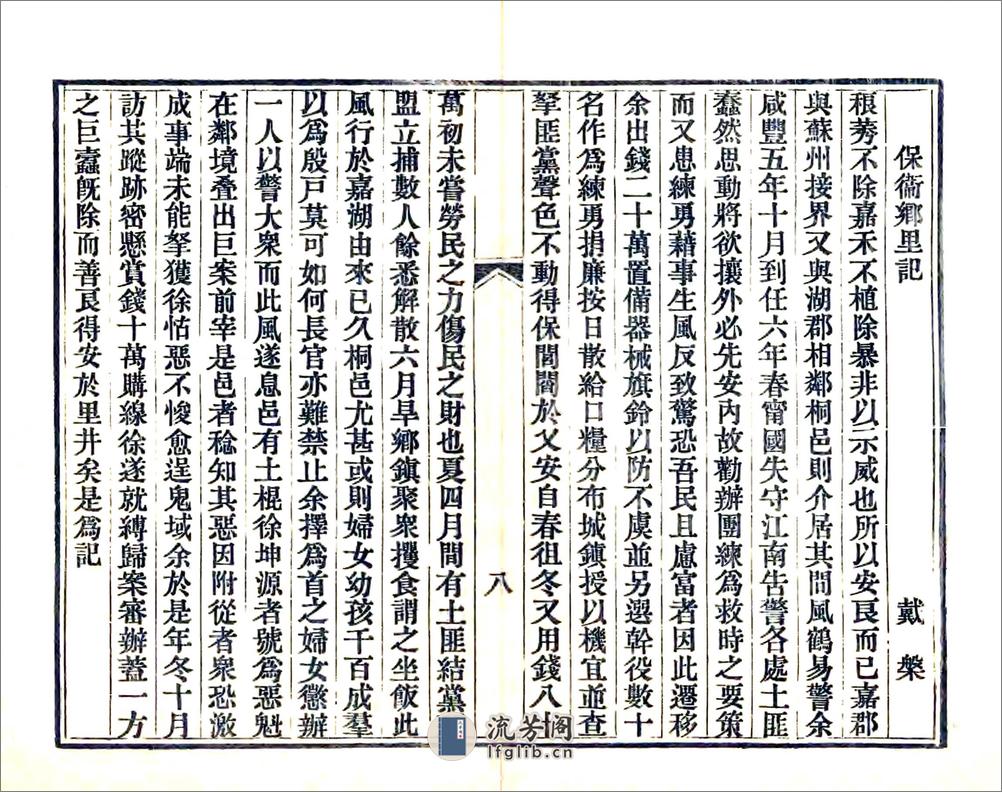 保衞鄉里記
戴槃
稂莠不除嘉禾不植除暴非以示威也所以安良而已嘉郡
與蘇州接界又與湖郡相鄰桐邑則介居其間風鶴易警余
咸豐五年十月到任六年春甯國失守江南吿警各處土匪
蠢然思動將欲攘外必先安內故勸辦團練爲救時之要策
而又患練勇藉事生風反致驚恐吾民且慮富者因此遷移
余出錢二十萬置備器械旗鈴以防不虞並另選幹役數十
名作爲練勇捐廉按日散給口糧分布城鎭授以機宜並查
拏匪黨聲色不動得保閭閻於乂安自春徂冬又用錢八十
八
萬初未嘗勞民之力傷民之財也夏四月間有土匪結黨
盟立捕數人餘悉解散六月旱鄉鎭聚衆攫食謂之坐飯此
風行於嘉湖由來已久桐邑尤甚或則婦女幼孩千百成羣
以爲殷戸莫可如何長官亦難禁止余擇爲首之婦女懲辦
一人以警大衆而此風遂息邑有土棍徐坤源者號爲惡魁
在鄰境叠出巨案前宰是邑者稔知其惡因附從者衆恐激
成事端未能拏獲徐怙惡不悛愈逞鬼域余於是年冬十月
訪其蹤跡密懸賞錢十萬購線徐遂就縛歸案審辦蓋一方
之巨蠹旣除而善良得安於里井矣是爲記
流芳阁
lfglib.cn